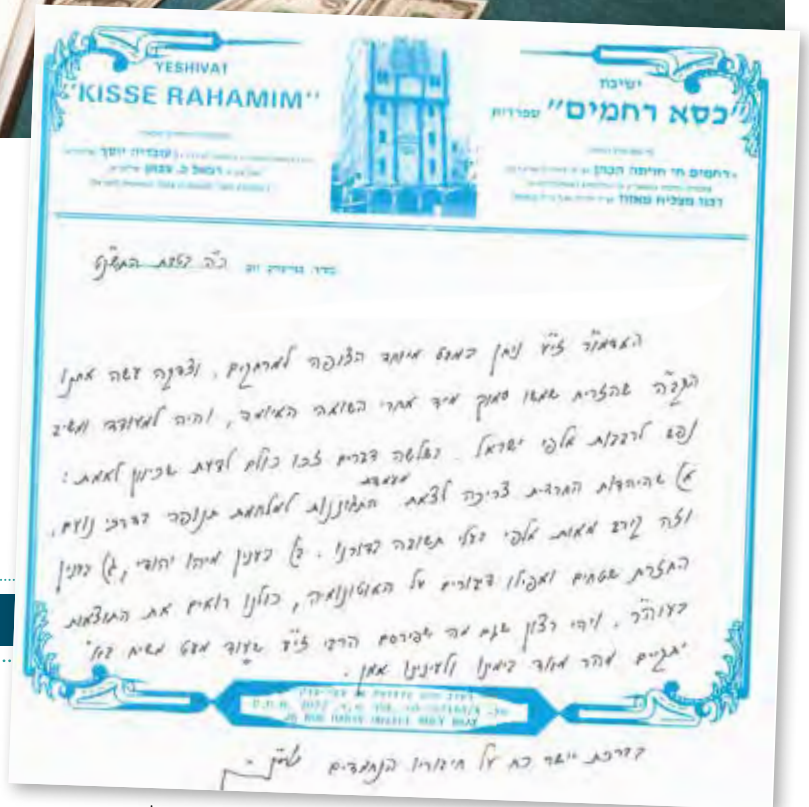 YESHIVAT
"KISSE RAHAMIM"
ישיבת
"כסא רחמים" ספרדית
רחמים חי חויתה הכהן
רבנו מצליח מאזוז
עובדיה יוסף
בני ברק
האדמו"ר זי"ע ניחן במבט מיוחד הצופה למרחקים, וצדקה עשה אתנו
הקב"ה שהזריח שמשו סמוך מיד אחרי השואה האיומה, והיה למעודד ומשיב
נפש לרבבות אלפי ישראל. בשלשה דברים זכו כולם לדעת שכיוון לאמת:
א) שהיהדות החרדית צריכה לצאת מעמדת התגוננות למלחמת תנופה בדרכי נועם,
וזה קירב מאות אלפי בעלי תשובה בדורנו. ב) בענין מיהו יהודי, ג) בענין
החזרת שטחים ואפילו דבורים על האוטונומיה, כולנו רואים את התוצאות
בעוה"ר. ויהי רצון שגם מה שפירסם הרבי זי"ע שעוד מעט משיח בא
יתקיים מהר מאוד בימינו ולעינינו אמן.
בברכת יישר כח על חיבוריו הנחמדים